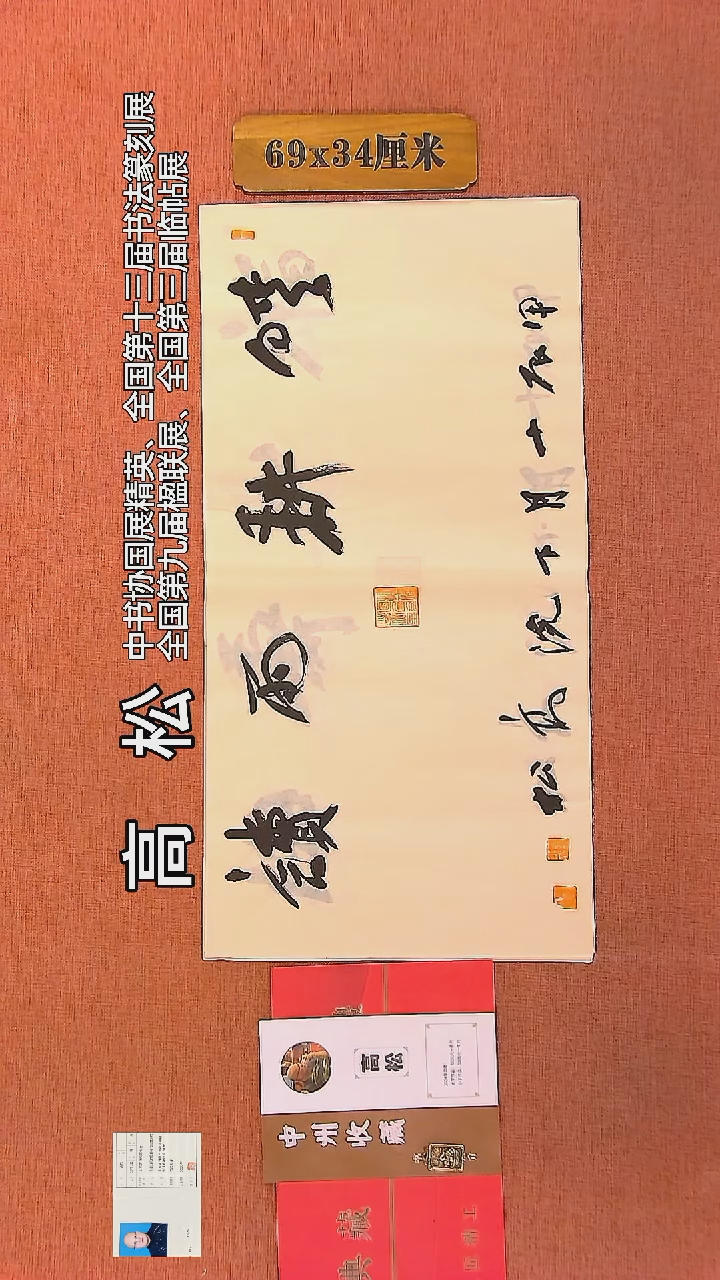 高 松
中书协国展精英、全国第十三届书法篆刻展
全国第九届楹联展、全国第三届临帖展
69x34厘米
晴耕雨讀
甲辰十月下浣高松
高松
中州收藏
典藏